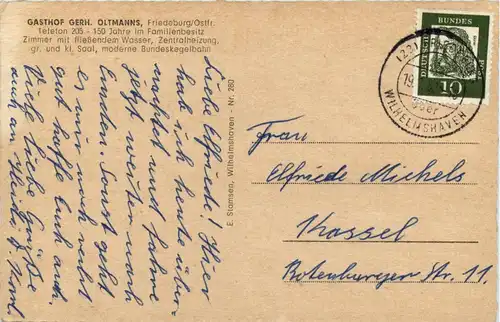 GASTHOF GERH. OLTMANNS, Friedeburg/Ostfr.
Telefon 205 - 150 Jahre im Familienbesitz
Zimmer mit fließendem Wasser, Zentralheizung,
gr. und kl. Saal, moderne Bundeskegelbahn
Liebe Elfriede! Hier
hab ich heute über-
nachtet und fahre
jetzt weiter nach
Sonst geht
es mir noch recht
gut hoffe Euch auch.
Viele liebe Grüße
auch an Heidi
E. Stamsen, Wilhelmshaven - Nr. 260
DEUTSCHE BUNDES POST
10
WILHELMSHAVEN
Frau
Elfriede Michels
Kassel
Rotenburger Str. 11